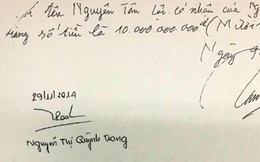 tên Nguyễn Tấn Lộc. Có nhận của Ng
số tiền là 10.000.000.000đ (Mười
Ngày 9
29/1/2014
Nguyễn Thị Quỳnh Trang